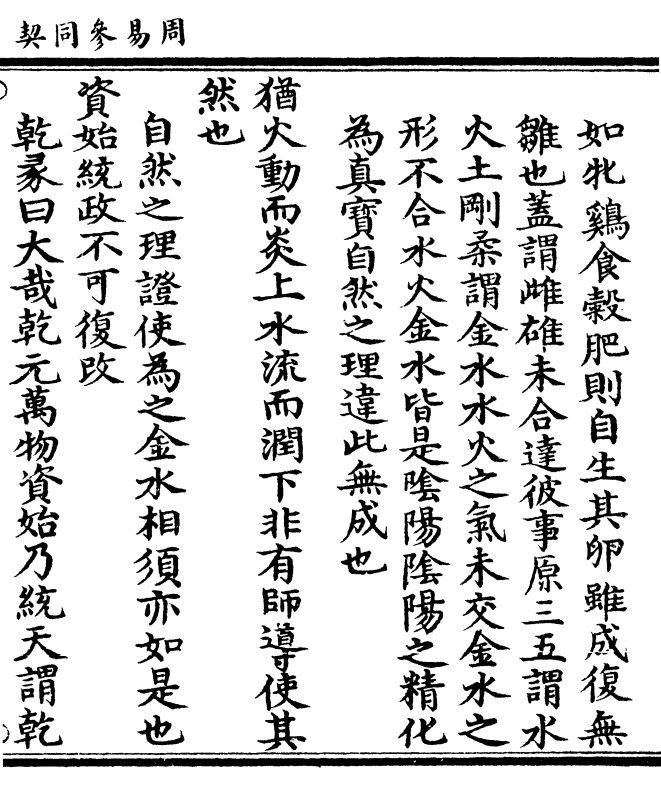 周易參同契
如牝鷄食穀肥則自生其卵雖成復無
雛也蓋謂雌雄未合達彼事原三五謂水
火土剛柔謂金水水火之氣未交金水之
形不合水火金水皆是陰陽陰陽之精化
為真寶自然之理違此無成也
猶火動而炎上水流而潤下非有師導使其
然也
自然之理證使為之金水相須亦如是也
資始統政不可復改
乾彖曰大哉乾元萬物資始乃統天謂乾